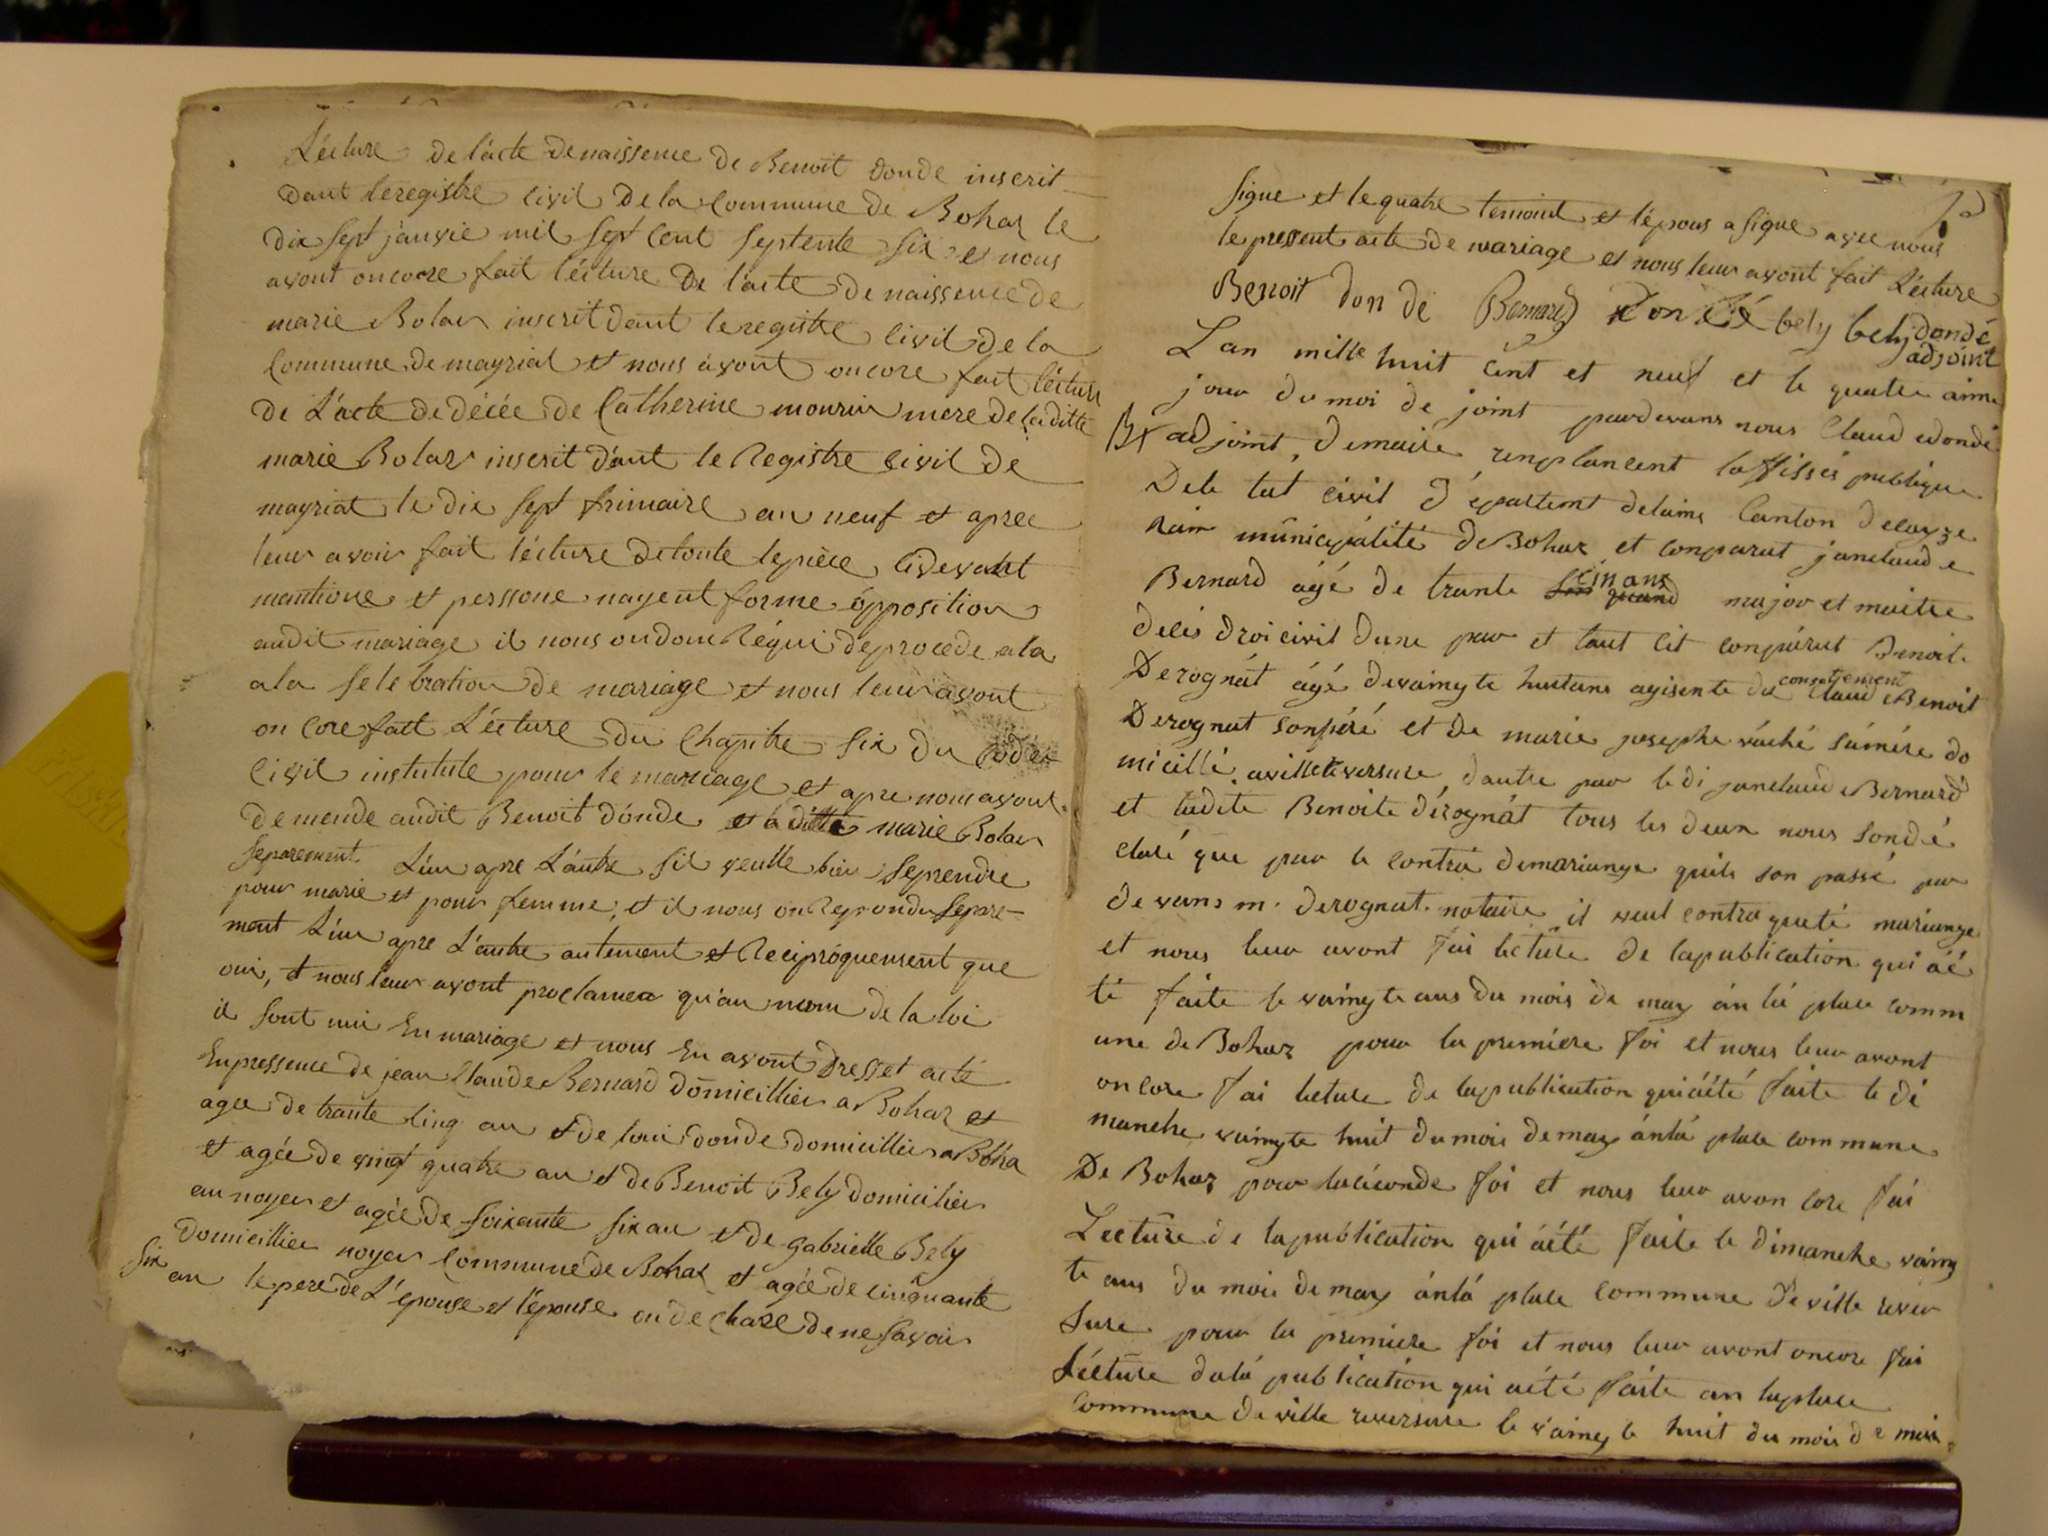 Lécture de l'acte de naissence de Benoit donde inscrit
dant le registre civil de la commune de Bohaz le
dix sept janvie mil sept cent septente six et nous
avont oncore fait lécture de l'acte de naissence de
marie Bolar inscrit dant le registre civil de la
Commune de mayriat et nous avont oncore fait lécture
de L'acte de décée de Catherine mourin mere de laditte
marie Bolar inscrit dant le Registre civil de
mayriat le dix sept frimaire an neuf et apree
leur avoir fait lécture de toute lepièce cidevant
mantione et perssone nayent forme opposition
audit mariage il nous on donc Réqui de procede a la
a la selebration de mariage et nous leur avont
on core fait Lécture du Chapitre six du Code
Civil instutute pour le mariage et apre nous avont
demende audit Benoit dónde et a ditte marie Bolar
separement L'un apre L'autre sil veulle bien seprendre
pour marie et pour femme, et il nous on Repondu separe-
ment L'un apre L'autre autement et Reciproquement que
oui, et nous leur avont proclamer qu'au nom de la loi
il sont uni En mariage et nous En avont dresset acte
En pressence de jean Claude Bernard domicillier a Bohaz et
agee de trante cinq an et de loui donde domicillier a Boha
et agée de vingt quatre an et de Benoit Bely domicilier
au noyer et agée de soixante six an et de gabrielle Bely
domicillier noyer Commune de Bohaz et agée de cinquante
six
an le pere de L'epouse et l'épouse on de Clare de ne savoir
signe et le quatre temoint et l'épous a signe avec nous
le pressent acte de mariage et nous leur avont fait Lécture
Benoit don de Bernard Don dé bely bely dondé
adjoint
L an mille huit cent et neuf et le quatre aime
jour du moi de joint pardevans nous Claud edondé
adjoint demaire remplancent loffissié publique
Dele tat civil d épartement delaime Canton deceyze
riair municipálité de Bohaz et conparut janclaud e
Bernard ágé de trante cin ans major et maitre
de cés droi civil dune par et tout cit conparut Benoit
Derognát ágé de vaingte huitans agisente du consettement Claud e Benoit
Derognat sonpéré et de marie josephe váché samére do
micillé a villereversure dautre par le di janclaud e Bernard
et ladite Benoite dérognát tous les deux nous sondé
claré que par le contra demariange quils son passé par
devans m. derognat notaire il veul contra queté mariange
et nous leur avont fai lecture de lapublication qui áé
té faite le vaingte aus du mois de may án lá place comm
une de Bohaz pour la premiere foi et nous leur avont
on core fai lecture de lapublication qui áété faite le di
manche vaingte huit du mois de may ánlá place commune
De Bohaz pour laciconde foi et nous leur avon core fai
Lecture de lapublication qui áété faite le dimanche vaing
te aus du mois de may ánlá place commune de ville rever
sure pour la premiere foi et nous leur avont oncore fai
Lécture dalá publicátion qui aété fáite an laplace
commune de ville reversure le vaingte huit du mois de